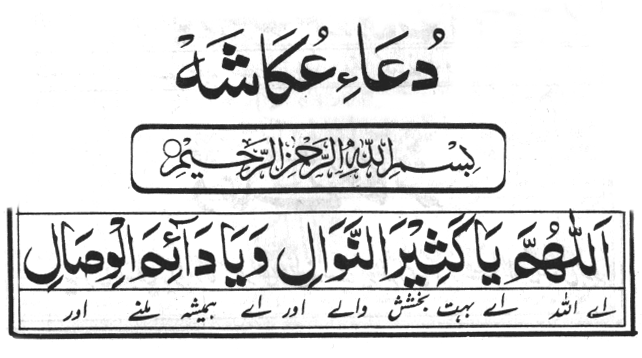 دُعَاءِ عُكَاشَه
بِسْمِ اللّٰهِ الرَّحْمٰنِ الرَّحِيْمِ
اَللّٰهُمَّ يَا كَثِيْرَ النَّوَالِ وَيَا دَآئِمَ الْوِصَالِ
اے اللہ اے بہت بخشش والے اور اے ہمیشہ ملنے اور